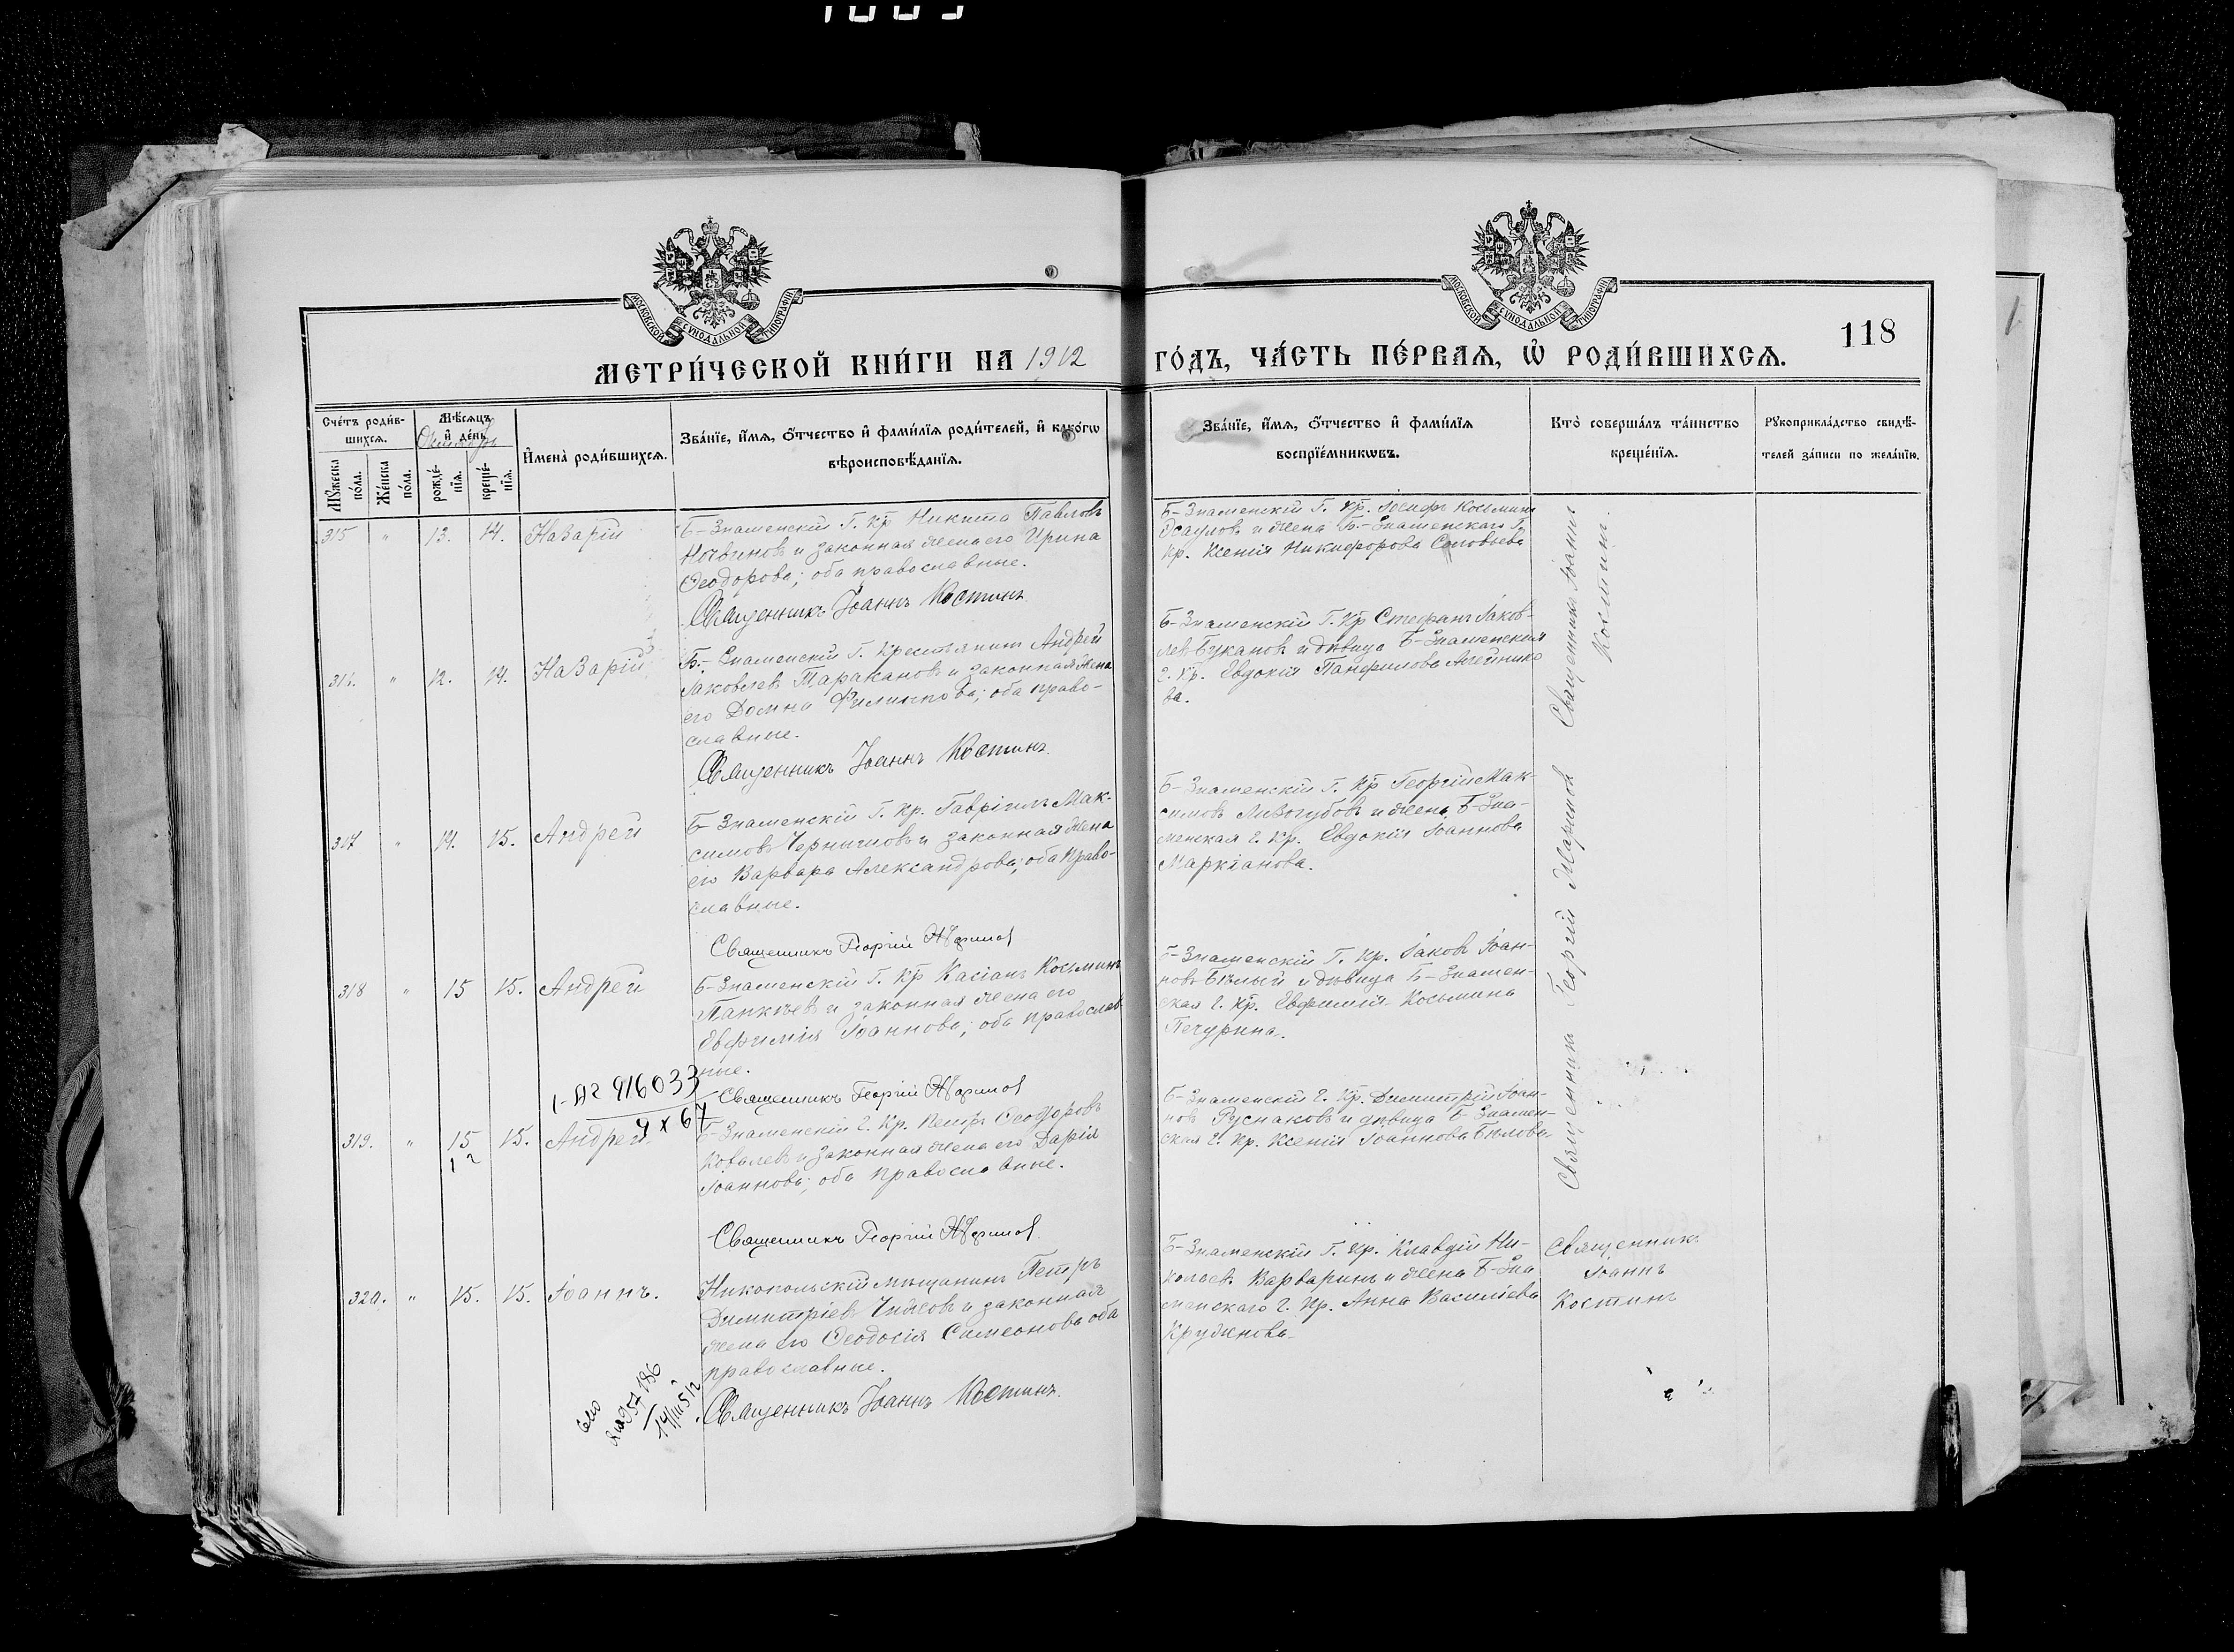 118
МОСКОВСКОЙ СѴНОДАЛЬНОЙ ТИПОГРАФІИ
МОСКОВСКОЙ СѴНОДАЛЬНОЙ ТИПОГРАФІИ
МЕТРИ́ЧЕСКОЙ КНИ́ГИ НА 1912 ГО́ДЪ, ЧА́СТЬ ПЕ́РВАѦ, Ѽ РОДИ́ВШИХСѦ.
Сче́тъ роди́в-
шихсѧ.
Мѣ́сѧцъ
и҆ де́нь
Октябрь
Мꙋ́жеска
по́ла.
Же́нска
по́ла.
рожде́-
нїѧ.
креще́-
нїѧ.
И҆мена̀ роди́вшихсѧ.
Зва́нїе, и҆́мѧ, ѻ҆́тчество и҆ фами́лїѧ роди́телей, и҆ како́гѡ
вѣроисповѣ́данїѧ.
Зва́нїе, и҆́мѧ, ѻ҆́тчество и҆ фами́лїѧ
воспрїе́мникѡвъ.
Кто̀ соверша́лъ та́инство
креще́нїѧ.
Рꙋкоприкла́дство свидѣ́-
телей за́писи по жела́нїю.
315 " 13. 14. Назарій
Б-Знаменскій Г. Кр Никита Павловъ
и законная жена его Ирина
Ѳеодорова; оба православные.
Священникъ Іоаннъ Костинъ
Б-Знаменскій Г. Кр. Іосифъ Косьминъ
Осауловъ и жена Б-Знаменскаго Г.
Кр. Ксенія Никифорова Соловьева
Священникъ Іоаннъ
Костинъ.
316. " 12. 14. Назарій
Б.-Знаменскій Г. Крестьянинъ Андрей
Іаковлевъ Таракановъ и законная жена
его Домна Филиппова; оба право-
славные.
Священникъ Іоаннъ Костинъ.
Б-Знаменскій Г. Кр Стефанъ Іаков-
левъ Букановъ и дѣвица Б-Знаменская
Г. Кр. Евдокія Панфилова Алейнико
ва.
317 " 14. 15. Андрей
Б-Знаменскій Г. Кр. Гавріилъ Мак-
симовъ и законная жена
его Варвара Александрова; оба право-
славные.
Священникъ Георгій
Б-Знаменскій Г. Кр Георгій Мак-
симовъ Лизогубовъ и жена Б-Зна-
менская Г. Кр. Евдокія Іоаннова
Маркіанова.
Священникъ Георгій
318 " 15 15. Андрей
Б-Знаменскій Г. Кр Касіанъ Косьминъ
и законная жена его
Евфимія Іоаннова; оба православ
ные.
Священникъ Георгій
Б-Знаменскій Г. Кр. Іаковъ Іоан-
новъ Бѣлый и дѣвица Б-Знамен-
ская Г. Кр. Евфимія Косьмина
Печурина.
916033
9 X 67
319. " 15 15. Андрей
12
Б-Знаменскій Г. Кр. Петръ Ѳеодоровъ
Ковалевъ и законная жена его Дарія
Іоаннова; оба православные.
Священникъ Георгій
Б-Знаменскій Г. Кр. Димитрій Іоан-
новъ Руснаковъ и дѣвица Б-Знамен-
ская Г. Кр. Ксенія Іоаннова Бѣлова.
320. " 15. 15. Іоаннъ.
Никопольскій мѣщанинъ Петръ
Димитріевъ и законная
жена его Ѳеодосія Симеонова оба
православные.
Священникъ Іоаннъ Костинъ.
Б-Знаменскій Г. Кр. Клавдій Ни-
колаевъ Варваринъ и жена Б-Зна
менскаго Г. Кр. Анна Василіева
Священникъ
Іоаннъ
Костинъ